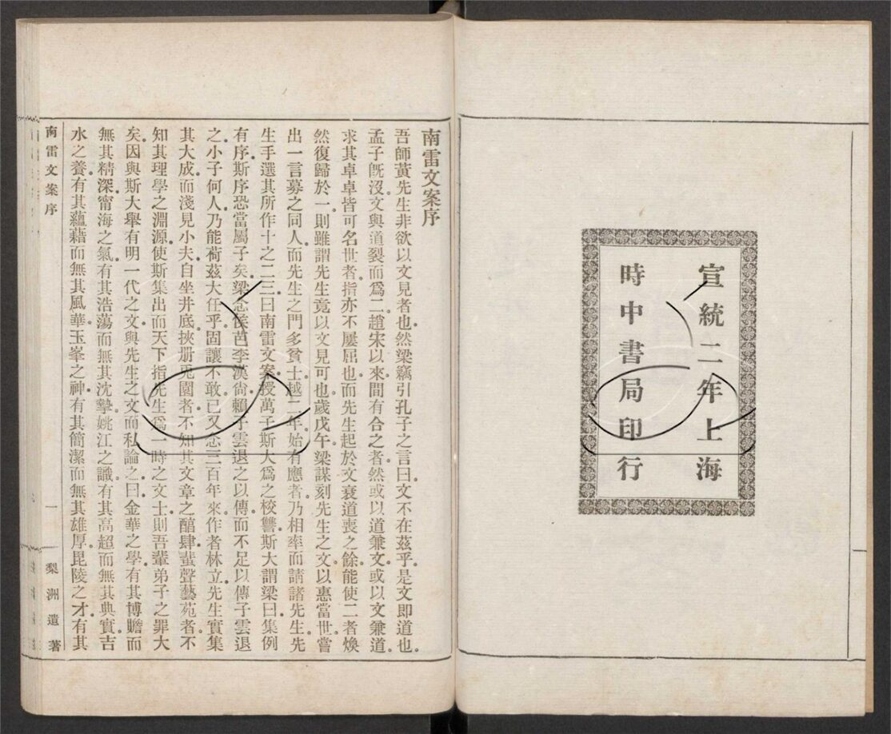 宣統二年上海
時中書局印行
南雷文案序
吾師黃先生非欲以文見者也然梁竊引孔子之言曰文不在茲乎是文即道也
孟子旣沒文與道裂而爲二趙宋以來間有合之者然或以道兼文或以文兼道
求其卓卓皆可名世者指亦不屢屈也而先生起於文衰道喪之餘能使二者煥
然復歸於一則雖謂先生竟以文見可也歲戊午梁謀刻先生之文以惠當世嘗
出一言募之同人而先生之門多貧士越二年始有應者乃相率而請諸先生先
生手選其所作十之二三曰南雷文案授萬子斯大爲之校讐斯大謂梁曰集例
有序斯序恐當屬子矣梁念侯芭李漢尙賴子雲退之以傳而不足以傳子雲退
之小子何人乃能荷茲大任乎固讓不敢已又念三百年來作者林立先生實集
其大成而淺見小夫自坐井底挾册兎園者不知其文章之醞肆蜚聲藝苑者不
知其理學之淵源使斯集出而天下指先生爲一時之文士則吾輩弟子之罪大
矣因與斯大舉有明一代之文與先生之文而私論之曰金華之學有其博贍而
無其精深甯海之氣有其浩蕩而無其沈摯姚江之識有其高超而無其典實吉
水之養有其蘊藉而無其風華玉峯之神有其簡潔而無其雄厚毘陵之才有其
南雷文案序
一
梨洲遺著